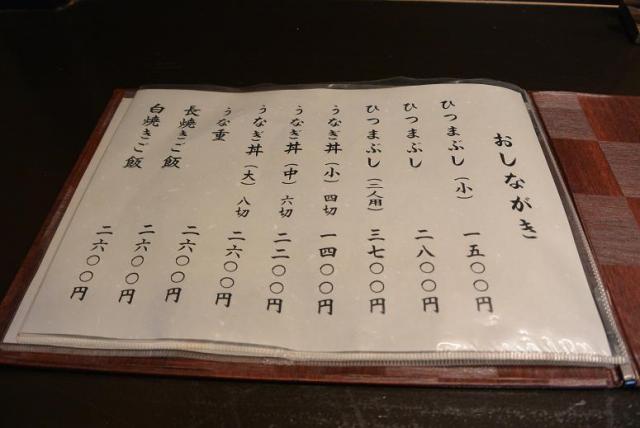 おしながき
ひつまぶし（小） 一五〇〇円
ひつまぶし 二八〇〇円
ひつまぶし（二人用） 三七〇〇円
うなぎ丼（小）四切 一四〇〇円
うなぎ丼（中）六切 二二〇〇円
うなぎ丼（大）八切 二六〇〇円
うな重 二六〇〇円
長焼きご飯 二六〇〇円
白焼きご飯 二六〇〇円